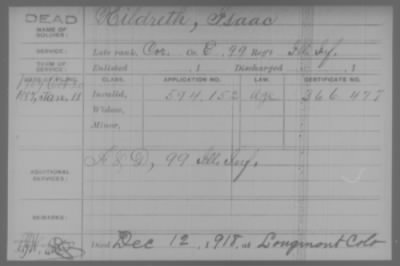 DEAD
NAME OF SOLDIER:
Hildreth, Isaac
SERVICE:
Late rank, Cor. Co. E, 99 Reg't Ill. Inf.
TERM OF SERVICE:
Enlisted , 1 Discharged , 1
DATE OF FILING.
CLASS. APPLICATION NO. LAW. CERTIFICATE NO.
1887, Jan. 18 Invalid, 594.152 Age 366.477
Widow,
Minor,
ADDITIONAL SERVICES:
F & D, 99 Ill. Inf.
REMARKS:
Died Dec 12, 1918, at Longmont Colo